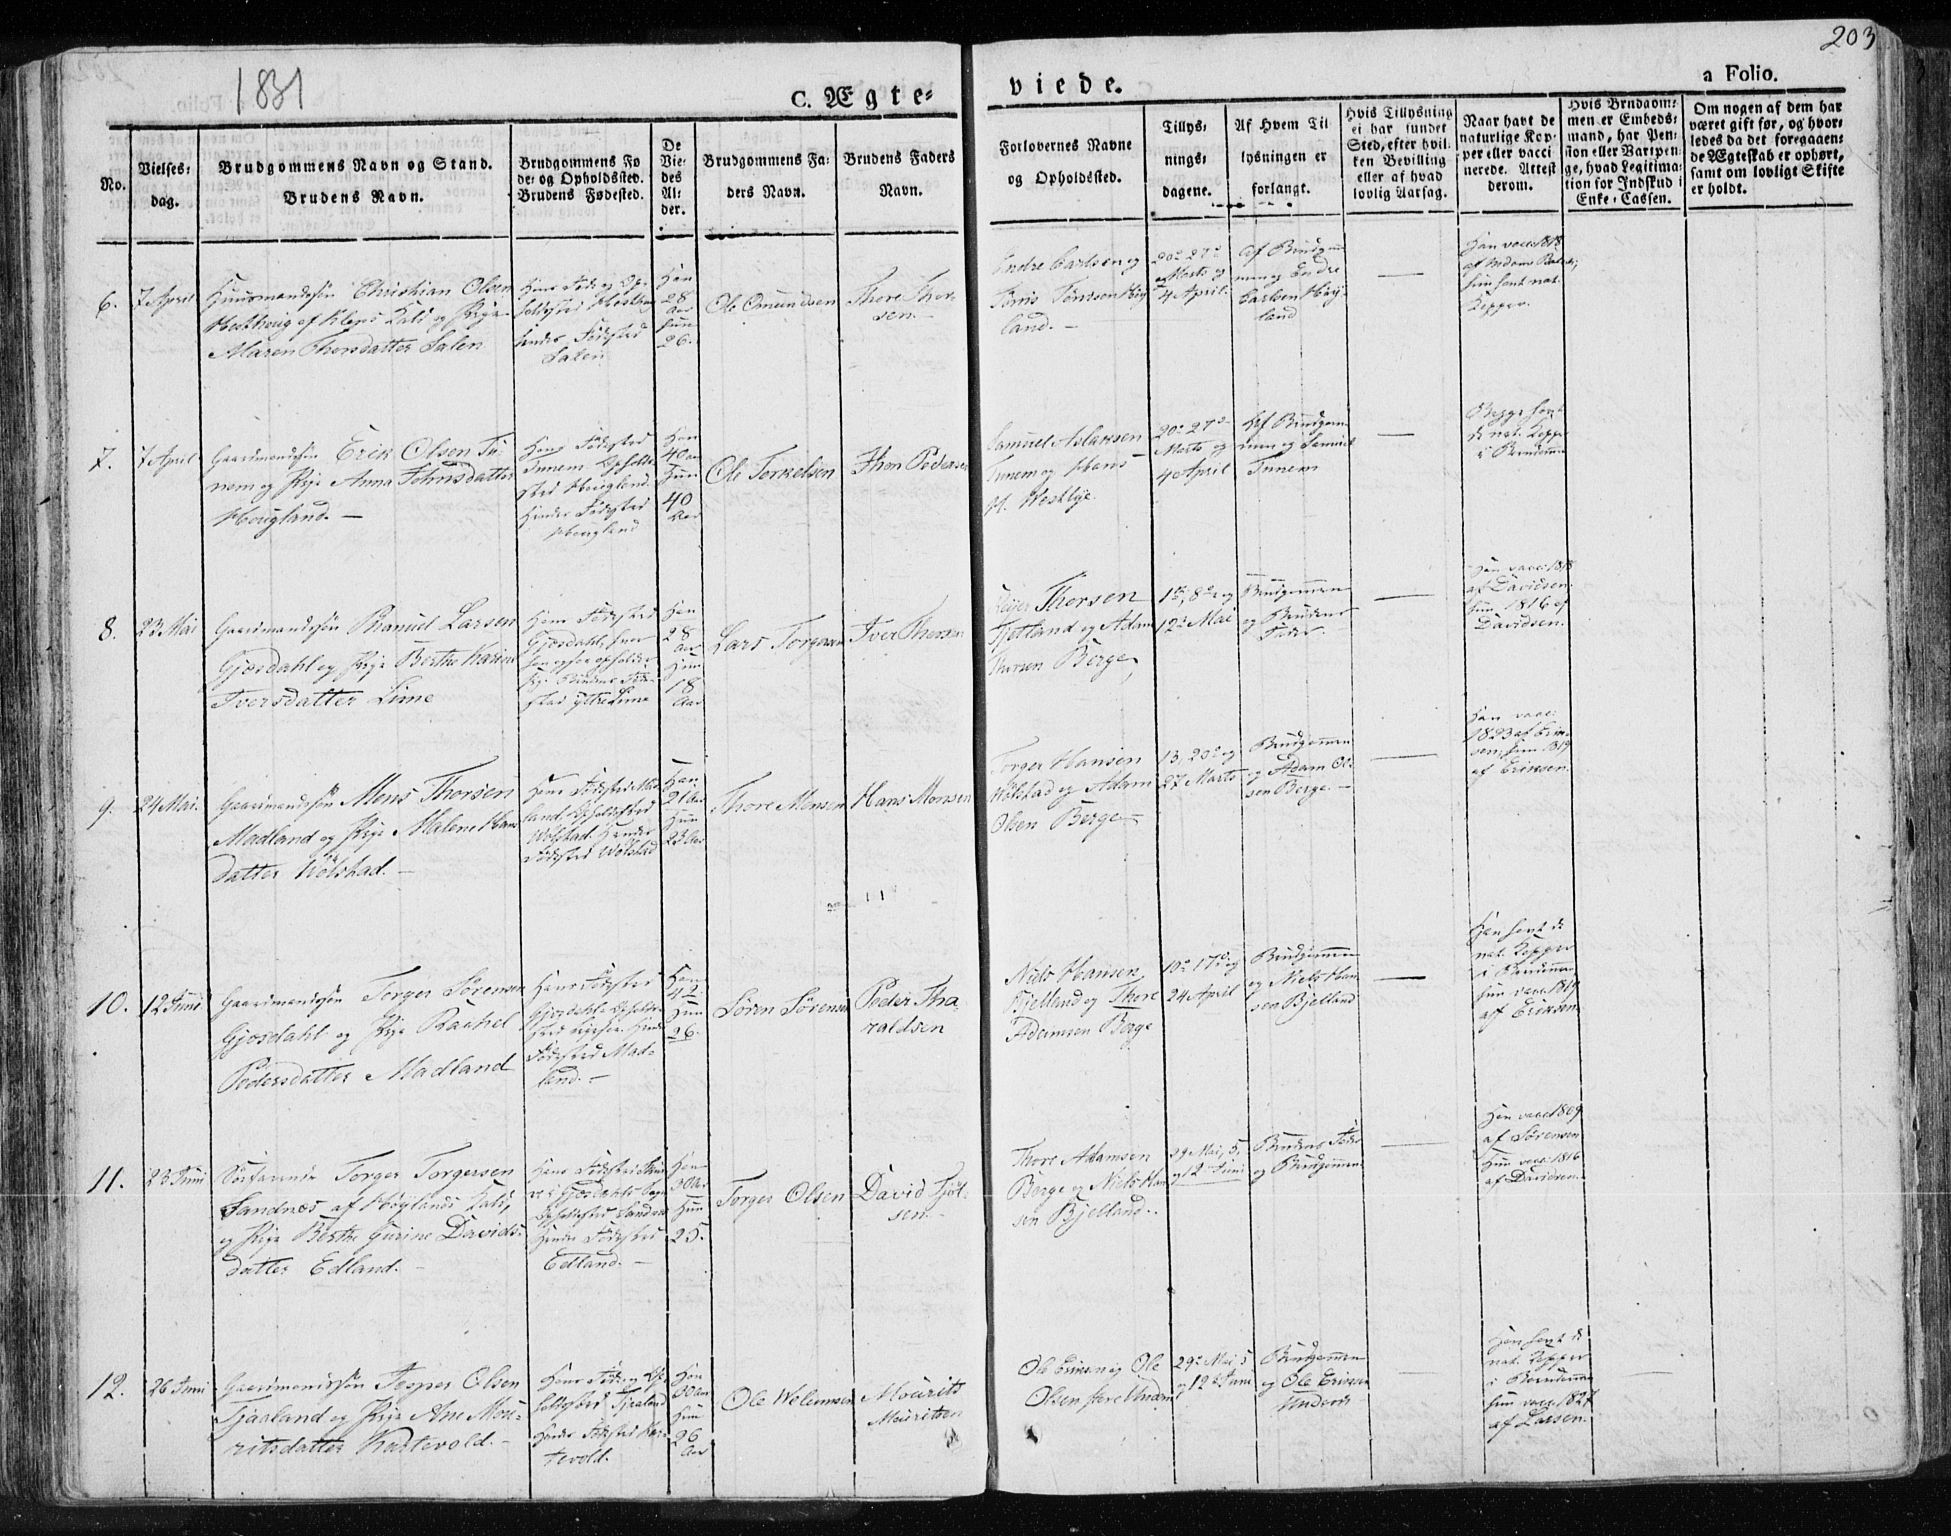 203
1831
C. Ægte-
viede.
a Folio.
No.
Vielses-
dag.
Brudgommens Navn og Stand.
Brudens Navn.
Brudgommens Fø
de- og Opholdssted.
Brudens Fødested.
De
Vie-
des
Al-
der.
Brudgommens Fa-
ders Navn.
Brudens Faders
Navn.
Forlovernes Navne
og Opholdssted.
Tillys-
nings-
dagene.
Af Hvem Til
lysningen er
forlangt.
Hvis Tillysning
ei har fundet
Sted, efter hvil-
ken Bevilling
eller af hvad
lovlig Aarsag.
Naar havt de
naturlige Kop-
per eller vacci
nerede. Attest
derom.
Hvis Brudgom-
men er Embeds-
mand, har Pen-
sion eller Vartpen-
ge, hvad Legitima-
tion for Indskud i
Enke-Cassen.
Om nogen af dem har
været gift før, og hvor-
ledes da det foregaaen-
de Ægteskab er ophørt,
samt om lovligt Skifte
er holdt.
6.
7 April
Huusmandssøn Christian Olsen
af Kleps Kald og Pige
Maren Thorsdatter Salen
Hans Føde og Op-
holdssted
hendes Fødested
Salen
Han
28
Aar
hun
26.
Ole Omundsen
Thore Thor-
sen.-
Endre Carlsen og
Tønnessen Høy
land.-
20de 27de
Marts og
4 April.
af Brudgom
men og Endre
Carlsen Høy-
land
Han vacc: 1818
hun havt nat.
Kopper.
7.
7 April
Gaardmandssøn Erik Olsen Tu-
nem og Pige Anna Johnsdatter
Hougland.-
Hans Fødested
Tunem Opholds-
sted Hougland
Hendes Fødested
Hougland
Han
40 aar
Hun
40
Aar
Ole Torkelsen
Jhon Pedersen
Samuel Aslaksen
Tunem og Hans
H. Westlye.
20de 27de
Marts og
4 April
Af Brudgom-
men og Samuel
Tunem
Begge havt
de nat. Kopper
i Barndommen
8.
23 Mai
Gaardmandssøn Phanuel Larsen
Gjøsdahl og Pige Berthe Karine
Iversdatter Lime
Hans Fødested
Gjøsdahl, hvor
han ogsaa opholder
sig Brudens Føde-
sted Ytre Lime
Han
28
Aar
Hun
18
Aar
Lars Torgersen
Iver Thorsen
Thorsen
Fjetland og Adam
Thorsen Berge,
1ste, 8de og
12te Mai
Brudgommen
og Brudens
Fader
Han vacc: 1818
af Davidsen.
hun 1816 af
Davidsen.
9.
24 Mai.
Gaardmandssøn Mons Thorsen
Madland og Pige Malene Hans
datter Wølstad.-
Hans Fødested Mad
land. Opholdssted
Wølstad. Hendes
Fødested Wølstad
Han
21 Aar
Hun
23 Aar
Thore Monsen
Hans Monsen
Torger Hansen
Wølstad og Adam
Olsen Berge.
13, 20de og
27 Marts
Brudgommen
og Adam Ol-
sen Berge.-
Han vacc:
1823 af Erik-
sen, hun 1819
af Eriksen.
10.
12 Juni
Gaardmandssøn Torger Sørensen
Gjøsdahl og Pige Rachel
Pedersdatter Madland
Hans Fødested
Gjøsdahl. Opholds-
sted ligesaa. Hendes
Fødested Mad-
land.-
Han
42
Hun
26.
Søren Sørensen
Peder Tha-
raldsen
Niels Hansen
Bjelland og Thore
Adamsen Berge
10de 17de og
24 April
Brudgommen
og Niels Han
sen Bjelland
Han havt de
nat. Kopper
i Barndommen
hun vacc: 1819
af Eriksen
11.
23 Juni
Torger Torgersen
Sandnes af Høylands Kald,
og Pige Berthe Gurine Davids-
datter Edland.-
Hans Fødested
i Gjøsdahls Sogn
Opholdssted Sandnes
Hendes Fødested
Edland.-
Han
30 Aar
Hun
25.
Torger Olsen
David Fjøl-
sen.
Thore Adamsen
Berge og Niels Han
sen Bjelland.
29 Mai, 5,
og 12 Juni
Brudens Fader
og Brudgommen
Han vacc: 1809
af Sørensen
Hun vacc: 1816
af Davidsen.
12.
26 Juni
Gaardmandssøn Jesper Olsen
Tjaaland og Pige Ane Mou-
ritsdatter Kartevold.-
Hans Føde og Op-
holdssted Tjaaland
Hendes Fødested Kar-
tevold.
Han
30 Aar
Hun
26
Aar
Ole Welemsen
Mourits
Mouritsen
Ole Eriksen og Ole
Olsen
29de Mai, 5
og 12te Juni
Brudgommen
og Ole Eriksen
Han havt de
nat. Kopper
i Barndommen
hun vacc: 1827
af Larsen.